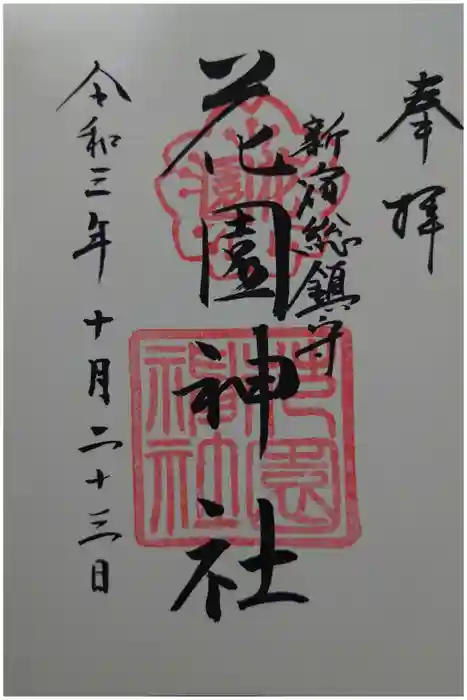 奉拝
新宿総鎮守
花園神社
令和三年 十月二十三日
花園神社